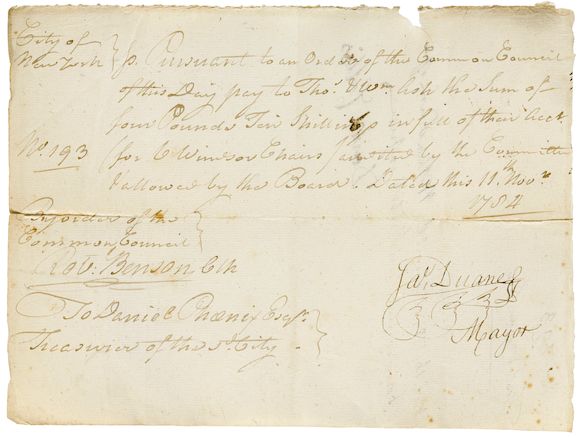 City of
New York } ss. Pursuant to an Order of the Common Council
of this Day pay to Thos. & Wm. Ash the Sum of
four Pounds Ten Shillings in full of their Acct.
No. 193
for 6 Windsor Chairs audited by the Committee
& allowed by the Board. Dated this 11th Novr.
1784
By order of the
Common Council
Robt. Benson Clk
Jas. Duane
Mayor
To Daniel Phœnix Esqr.
Treasurer of the sd. City